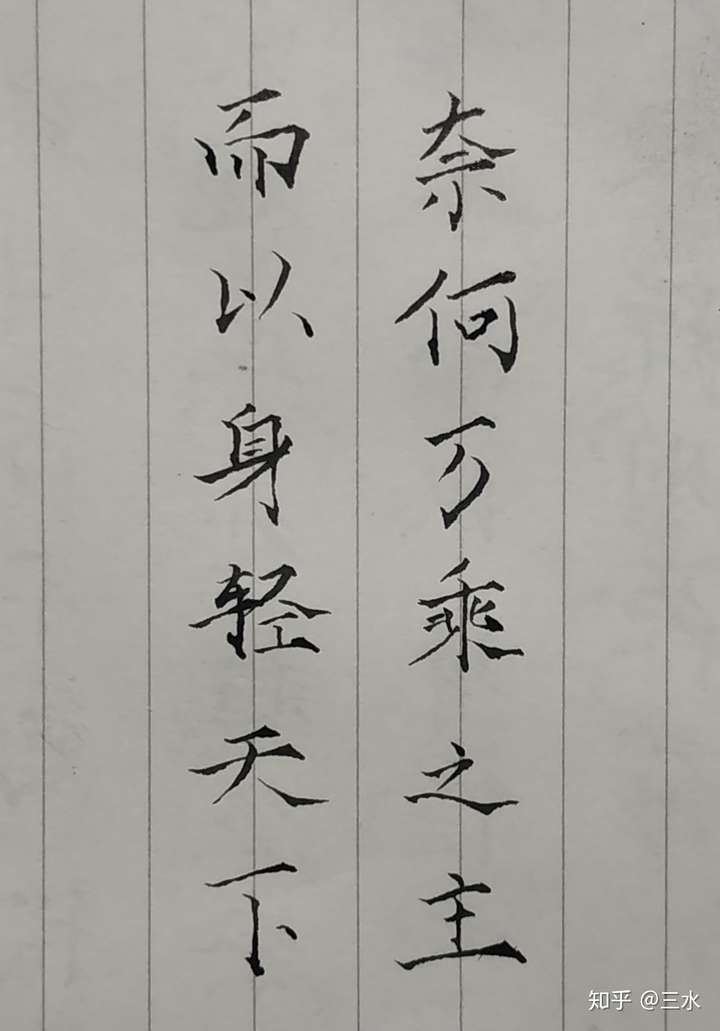 奈何万乘之主
而以身轻天下
知乎 @三水